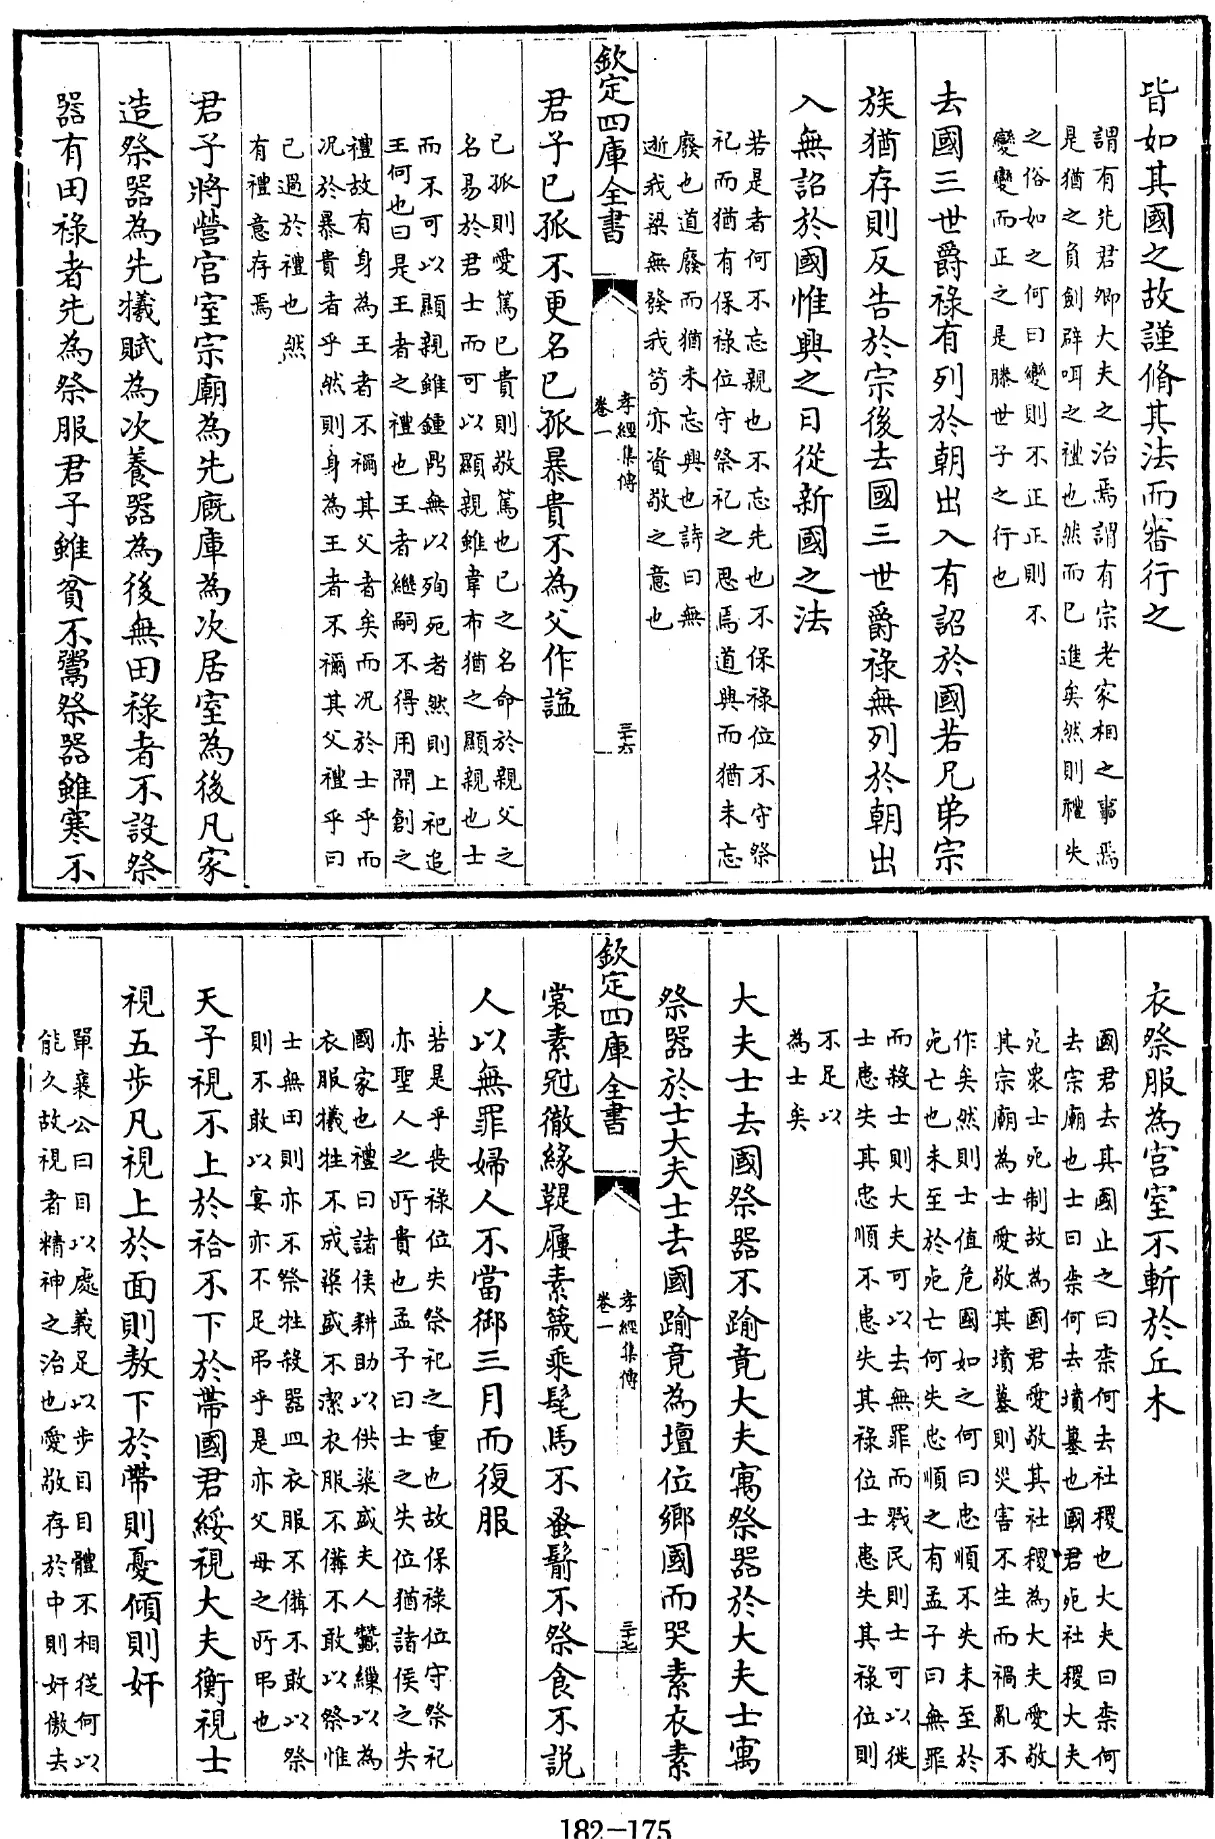 皆如其國之故謹脩其法而審行之
謂有先君卿大夫之治焉謂有宗老家相之事焉
是猶之負劍辟咡之禮也然而已進矣然則禮失
之俗如之何曰變則不正正則不
變變而正之是滕世子之行也
去國三世爵祿有列於朝出入有詔於國若兄弟宗
族猶存則反告於宗後去國三世爵祿無列於朝出
入無詔於國惟興之日從新國之法
若是者何不忘親也不忘先也不保祿位不守祭
祀而猶有保祿位守祭祀之思焉道興而猶未忘
廢也道廢而猶未忘興也詩曰無
逝我梁無發我笱亦資敬之意也
欽定四庫全書
孝經集傳
卷一
三十六
君子已孤不更名已孤暴貴不為父作諡
已孤則愛篤已貴則敬篤也已之名命於親父之
名易於君士而可以顯親雖韋布猶之顯親也士
而不可以顯親雖鍾鼎無以殉死者然則上祀追
王何也曰是王者之禮也王者繼嗣不得用開創之
禮故有身為王者不禰其父者矣而况於士乎而
况於暴貴者乎然則身為王者不禰其父禮乎曰
已過於禮也然
有禮意存焉
君子將營宫室宗廟為先廐庫為次居室為後凡家
造祭器為先犧賦為次養器為後無田祿者不設祭
器有田祿者先為祭服君子雖貧不鬻祭器雖寒不
衣祭服為宫室不斬於丘木
國君去其國止之曰柰何去社稷也大夫曰柰何
去宗廟也士曰柰何去墳墓也國君死社稷大夫
死衆士死制故為國君愛敬其社稷為大夫愛敬
其宗廟為士愛敬其墳墓則災害不生而禍亂不
作矣然則士值危國如之何曰忠順不失未至於
死亡也未至於死亡何失忠順之有孟子曰無罪
而殺士則大夫可以去無罪而戮民則士可以徙
士患失其忠順不患失其祿位士患失其祿位則
不足以
為士矣
大夫士去國祭器不踰竟大夫寓祭器於大夫士寓
祭器於士大夫士去國踰竟為壇位鄉國而哭素衣素
欽定四庫全書
孝經集傳
卷一
三十七
裳素冠徹緣鞮屨素簚乘髦馬不蚤鬋不祭食不説
人以無罪婦人不當御三月而復服
若是乎喪祿位失祭祀之重也故保祿位守祭祀
亦聖人之所貴也孟子曰士之失位猶諸侯之失
國家也禮曰諸侯耕助以供粢盛夫人蠶繅以為
衣服犧牲不成粢盛不潔衣服不備不敢以祭惟
士無田則亦不祭牲殺器皿衣服不備不敢以祭
則不敢以宴亦不足弔乎是亦父母之所弔也
天子視不上於袷不下於帶國君綏視大夫衡視士
視五步凡視上於面則敖下於帶則憂傾則奸
單襄公曰目以處義足以步目目體不相從何以
能久故視者精神之治也愛敬存於中則奸傲去
182-175